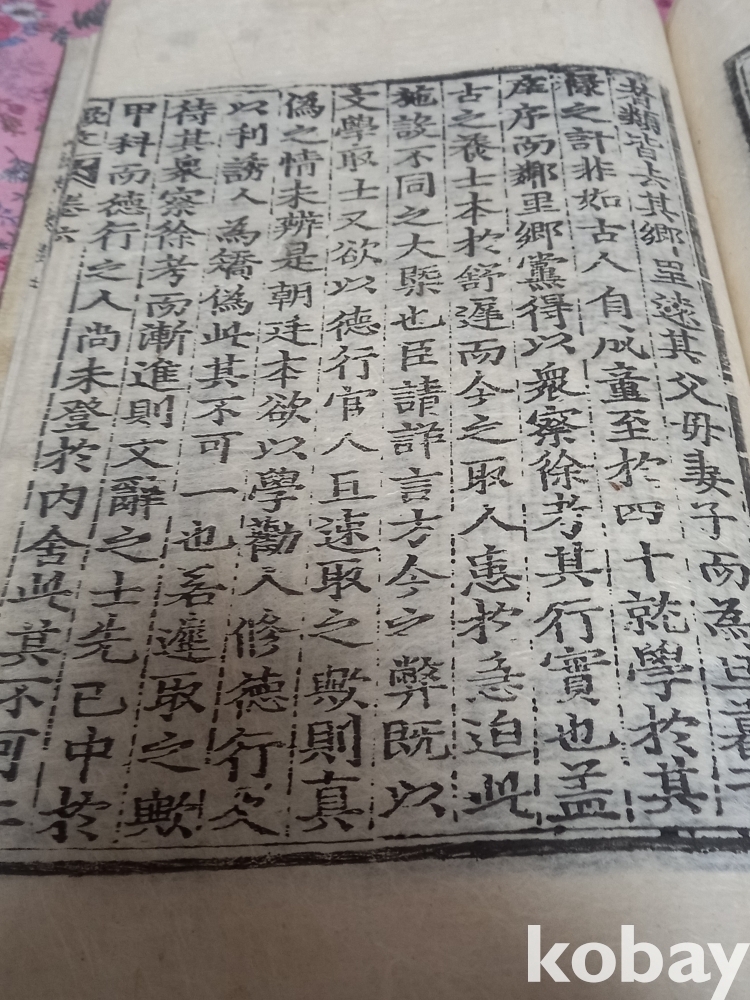 者類皆去其鄉里遠其父母妻子而為旦暮
祿之計非如古人自成童至於四十就學於其
庠序而鄰里鄉黨得以衆察徐考其行實也盖
古之養士本於舒遲而今之取人患於急迫此
施設不同之大槩也臣請詳言方今之弊既以
文學取士又欲以德行官人且速取之歟則真
偽之情未辨是朝廷本欲以學勸人修德行反
以利誘人為矯偽此其不可一也若遲取之歟
待其衆察徐考而漸進則文辭之士先已中於
甲科而德行之人尚未登於內舍此其不可二
卷六
kobay